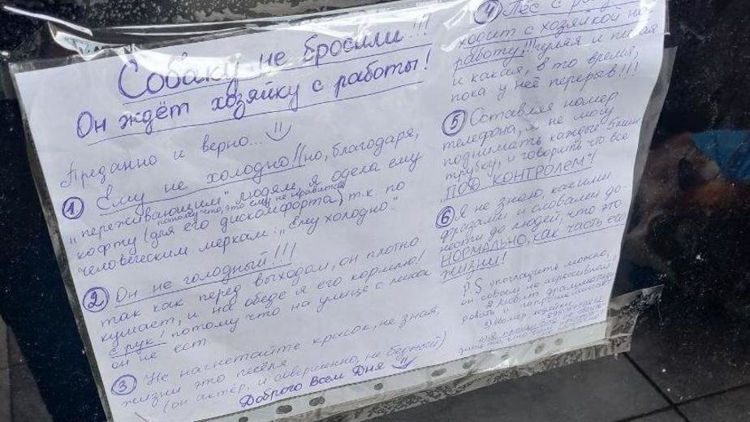 Собаку не бросили!!!
Он ждёт хозяйку с работы!
Преданно и верно...
① Ему не холодно!! но, благодаря,
"переживающим" людям, я одела ему
потому что, это ему не нравится
кофту (для его дискомфорта) т.к. по
человеческим меркам: „Ему холодно"
② Он не голодный!!!
так как перед выходом, он плотно
кушает, и на обеде я его кормлю!
с рук! потому что на улице с миски
он не ест
③ Не нагнетайте красок, не зная,
жизни это пёселя
(он актёр, и совершенно, не бедный)
Доброго Всем Дня
④ Пёс с
ходит с хозяйкой на
работу!!!
и какая, в то время,
пока у неё перерыв!!!
⑤ Оставляя номер
телефона, я не могу
поднимать каждые 5 мин
трубку, и говорить что всё
ПОД "КОНТРОЛЕМ"!
⑥ Я не знаю, какими
фразами и словами до-
нести до людей, что это
НОРМАЛЬНО, как часть его
жизни!
P.S угладите можно,
он совсем не агрессивный